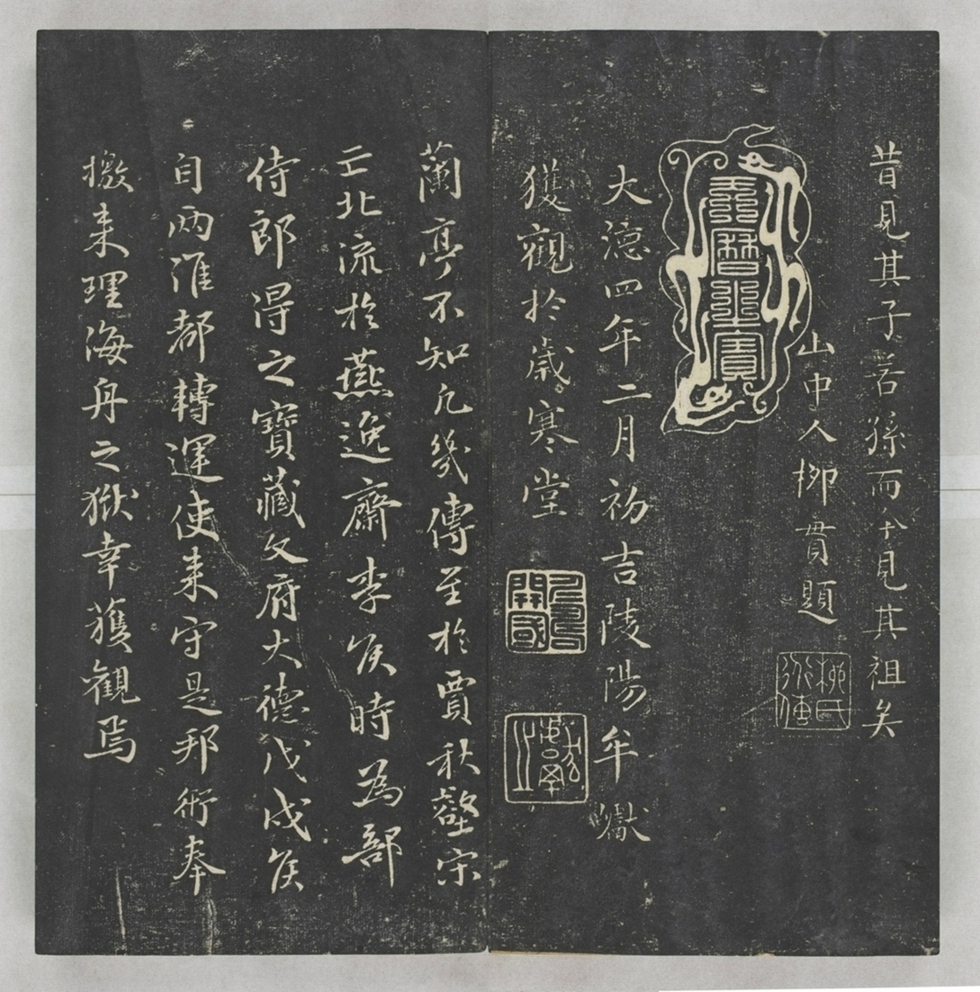 昔見其子若孫而今見其祖矣
山中人柳貫題
大德四年二月初吉陵陽牟巘
獲觀於歲寒堂
蘭亭不知凡幾傳至於賈秋壑宋
亡北流於燕逸齋李侯時為部
侍郎得之寶藏文府大德戊戌侯
自兩淮都轉運使来守是邦衎奉
檄来理海舟之獄幸獲觀焉
柳氏